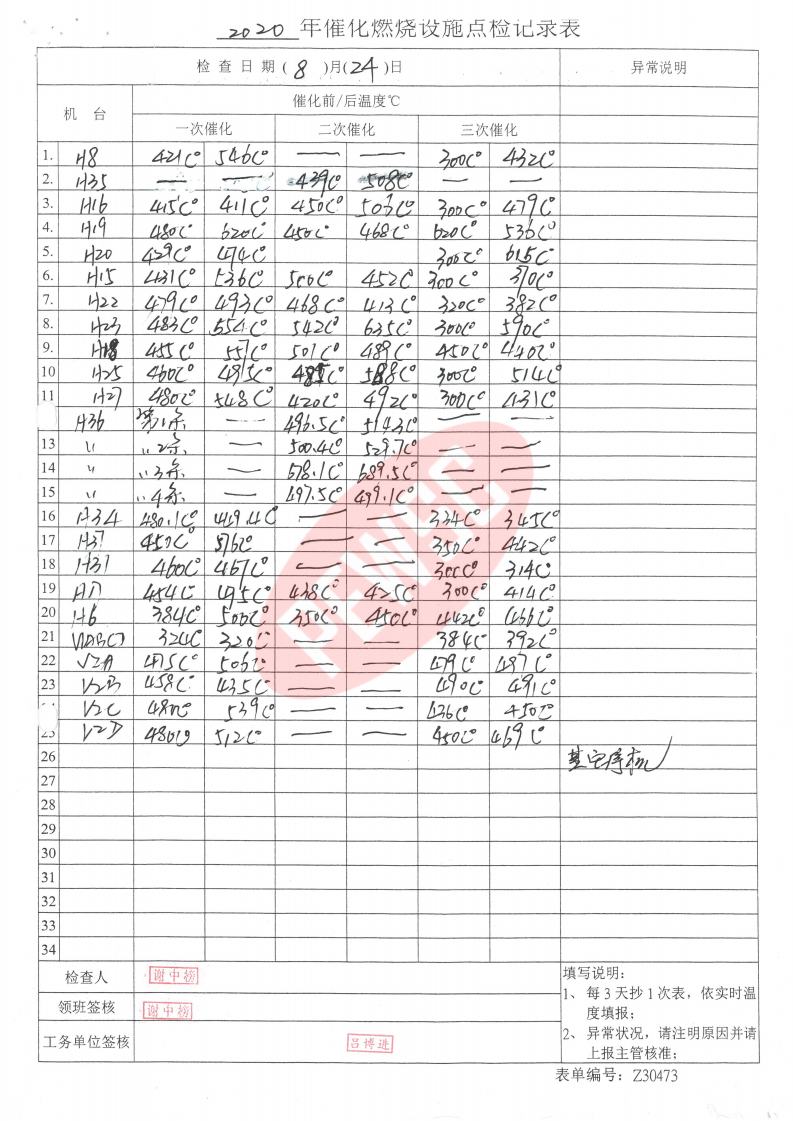 2020 年催化燃烧设施点检记录表
检查日期(8)月(24)日 异常说明
机 台 催化前/后温度℃
一次催化 二次催化 三次催化
1. H8 421C° 546C° — — 300C° 432C°
2. H35 — — 439C° 508C° — —
3. H16 415C° 411C° 450C° 503C° 300C° 479C°
4. H19 480C° 620C° 450C° 468C° 620C° 536C°
5. H20 429C° 474C° 300C° 615C°
6. H15 431C° 536C° 500C° 452C° 300C° 370C°
7. H22 479C° 493C° 468C° 413C° 320C° 382C°
8. H23 483C° 554C° 542C° 635C° 300C° 590C°
9. H18 455C° 557C° 501C° 489C° 450C° 440C°
10 H25 460C° 495C° 300C° 514C°
11 H27 480C° 548C° 420C° 492C° 300C° 431C°
H36 第1条 — 496.5C° 514.3C° — —
13 〃 〃2条 — 500.4C° 529.7C° — —
14 〃 〃3条 — 678.1C° 689.5C° — —
15 〃 〃4条 — 497.5C° 499.1C° — —
16 H34 480.1C° 449.4C° — — 334C° 345C°
17 H37 450C° 576C° — — 350C° 442C°
18 H31 460C° 467C° — — 300C° 314C°
19 H17 454C° 495C° 438C° 425C° 300C° 414C°
20 H6 384C° 500C° 350C° 450C° 442C° 466C°
21 324C° 320C° — — 384C° 392C°
22 V2A 475C° 506C° — — 479C° 497C°
23 V2B 458C° 435C° — — 490C° 491C°
V2C 480C° 539C° — — 436C° 450C°
25 V2D 480C° 512C° — — 450C° 469C°
26
27
28
29
30
31
32
33
34
PEWC
检查人 谢中榜
领班签核 谢中榜
工务单位签核 吕博进
填写说明：
1、每3天抄1次表，依实时温
度填报；
2、异常状况，请注明原因并请
上报主管核准；
表单编号：Z30473